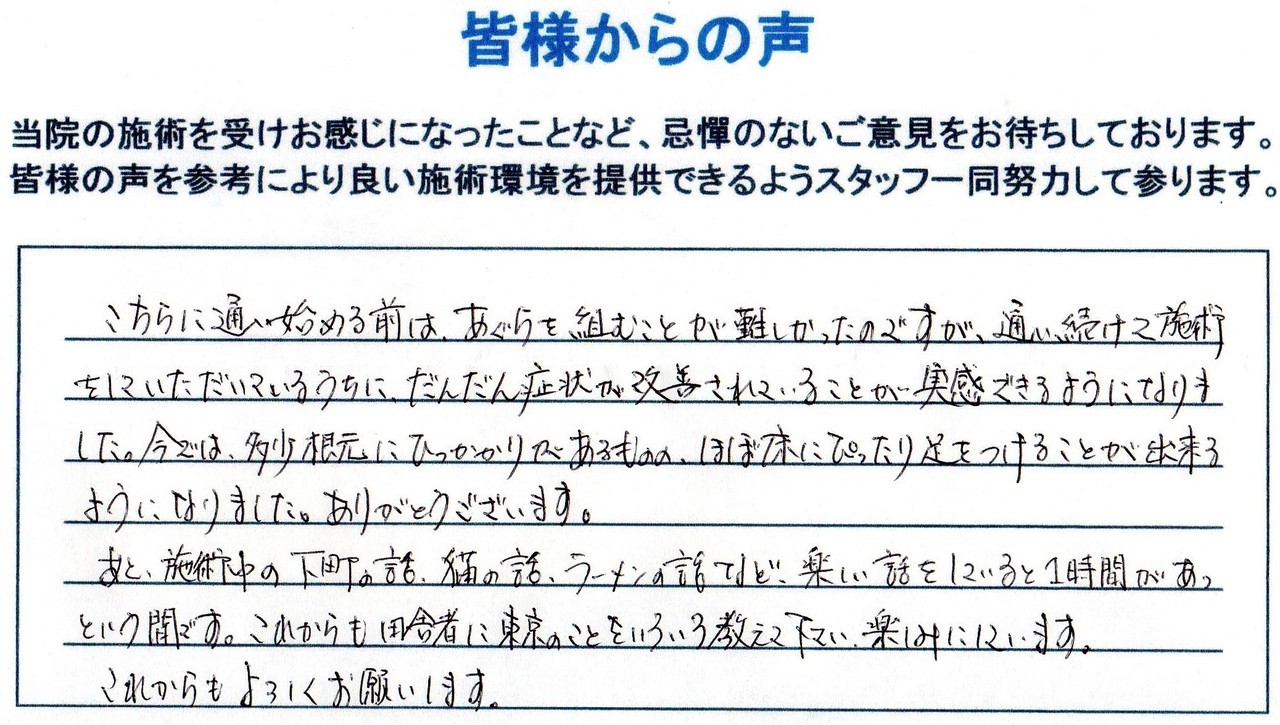 皆様からの声
当院の施術を受けお感じになったことなど、忌憚のないご意見をお待ちしております。
皆様の声を参考により良い施術環境を提供できるようスタッフ一同努力して参ります。
こちらに通い始める前は、あぐらを組むことが難しかったのですが、通い続けて施術
をしていただいているうちに、だんだん症状が改善されていることが実感できるようになりま
した。今では、多少根元にひっかかりがあるものの、ほぼ床にぴったり足をつけることが出来る
ようになりました。ありがとうございます。
あと、施術中の下町の話、猫の話、ラーメンの話など、楽しい話をしていると1時間があっ
という間です。これからも田舎者に東京のことをいろいろ教えて下さい。楽しみにしています。
これからもよろしくお願いします。